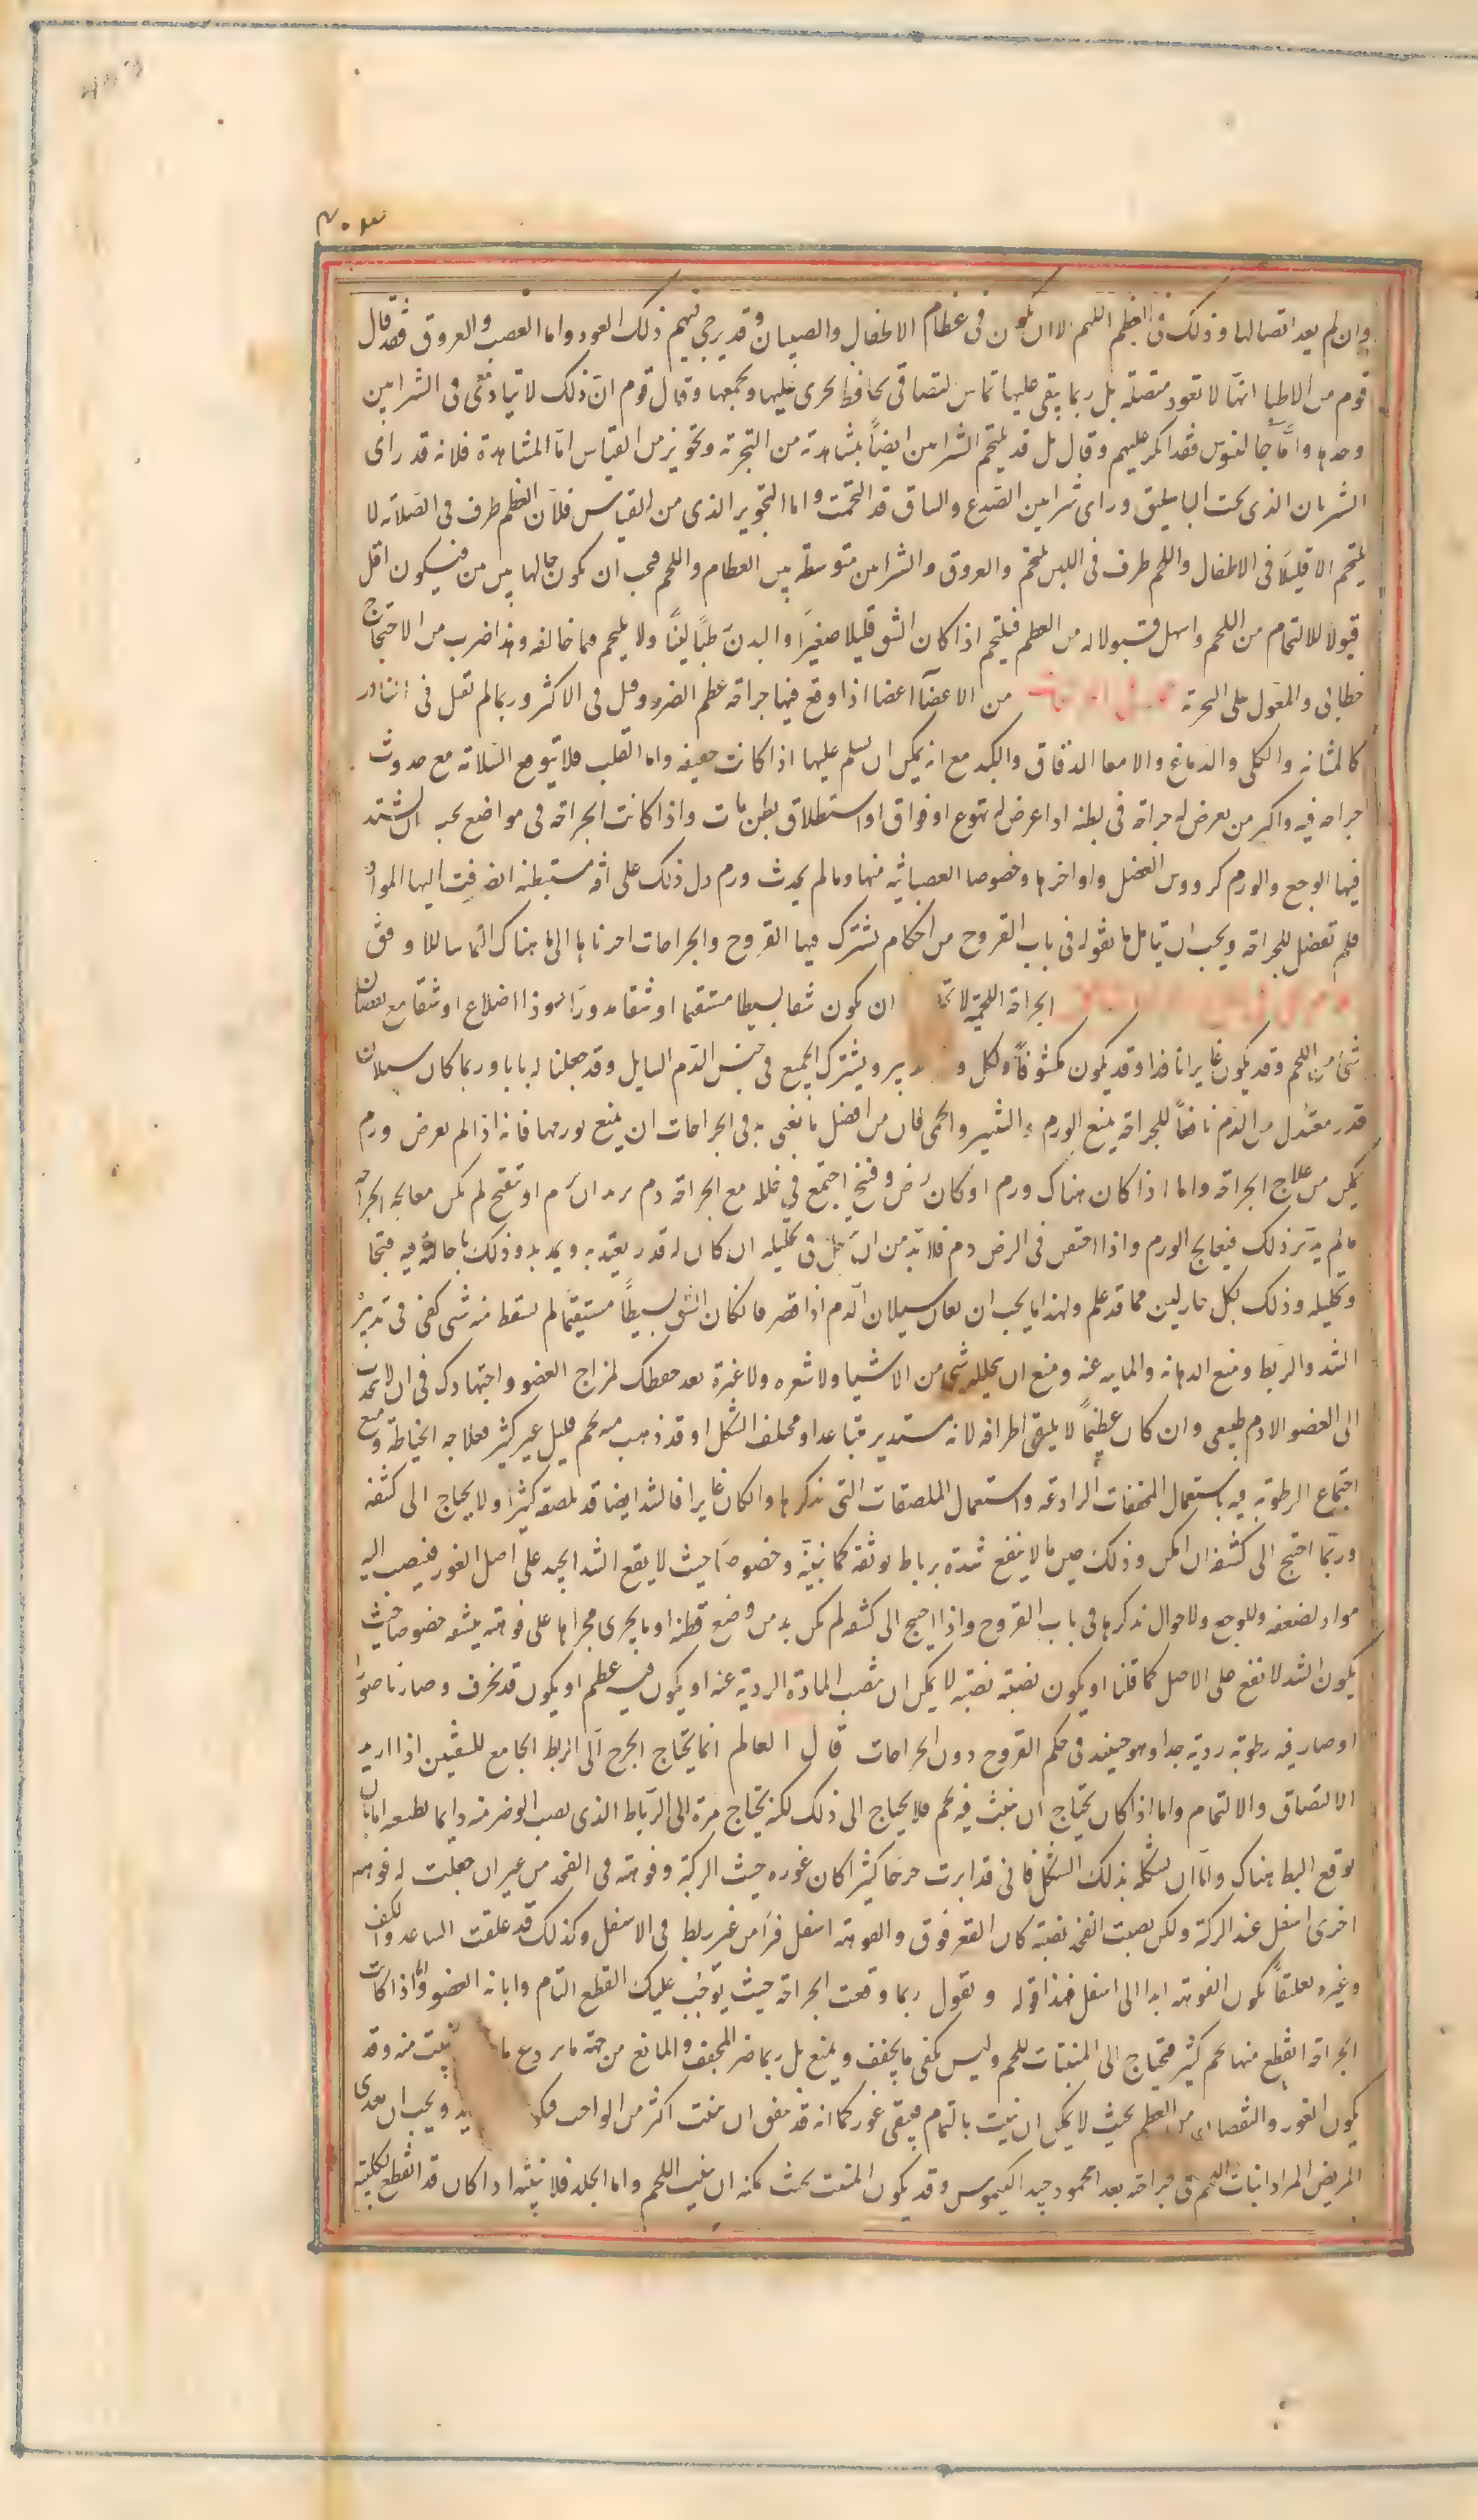 وان لم يعد اتصالها وذلك فى العظم اللهم الا ان يكون فى عظام الاطفال والصبيان وقد يرجى فيهم ذلك العود واما العصب والعروق فقد قال
قوم من الاطبا انها لا تعود متصلة بل ربما يبقى عليها تماس لتصاقى بحافظ يجرى عليها ويجمعها وقال قوم ان ذلك لا يتادى فى الشرايين
وحدها واما جالينوس فقد انكر عليهم وقال بل قد يلتحم الشرايين ايضاً بمشاهدة من التجربة وتجويز من القياس اما المشاهدة فلانه قد راى
الشريان الذى تحت الباسليق وراى شرايين الصدع والساق قد التحمت واما التجويز الذى من القياس فلان العظم طرف فى الصلابة لا
يلتحم الا قليلا فى الاطفال واللحم طرف فى اللين يلتحم والعروق والشرايين متوسطة بين العظام واللحم فيجب ان يكون حالها بين بين فيكون اقل
قبولا للالتحام من اللحم واسهل قبولا له من العظم فيلتحم اذا كان الشق قليلا صغيرا والبدن رطبا لينا ولا يلتحم فيما خالفه وهذا ضرب من الاحتجاج
خطابى والمعول على التجربة من الاعضا اعضا اذا وقع فيها جراحة عظم الضرر وقتل فى الاكثر وربما لم تقتل فى النادر
كالمثانة والكلى والدماغ والامعا الدقاق والكبد مع انه يمكن ان يسلم عليها اذا كانت خفيفة واما القلب فلا يتوقع السلامة مع حدوث
جراحه فيه واكثر من يعرض له جراحة فى بطنه اذا عرض له تهوع او فواق او استطلاق بطن مات واذا كانت الجراحة فى مواضع يجب ان يشتد
فيها الوجع والورم كرووس العضل واواخرها وخصوصا العصبانية منها وما لم يحدث ورم دل ذلك على افة مستبطنة انصرفت اليها المواد
فلم تفضل للجراحة ويجب ان تتامل ما نقوله فى باب القروح من احكام تشترك فيها القروح والجراحات اخرناها الى ما هناك التماسا للاوفق
الجراحة اللحمية ان يكون شقا بسيطا مستقيما او شقا مدورا او ذا اضلاع او شقا مع نقصان
شئ من اللحم وقد يكون غايرا نافذا وقد يكون مكشوفاً ولكل تدبير ويشترك الجميع فى حبس الدم السايل وقد جعلنا له بابا وربما كان سيلان
قدر معتدل من الدم نافعاً للجراحة يمنع الورم والتسير والحمى فان من افضل ما يعنى به فى الجراحات ان يمنع تورمها فانه اذا لم يعرض ورم
يمكن من علاج الجراحة واما اذا كان هناك ورم او كان رض وفسخ اجتمع فى خلله مع الجراحة دم يريد ان يرم او يتقيح لم يمكن معالجة الجراحة
ما لم يدبر ذلك فيعالج الورم واذا احتقن فى الرض دم فلا بد من ان يتعجل فى تحليله ان كان له قدر يعتد به ويمدده وذلك باحالته فيه فتحا
وتحليله وذلك بكل حار لين مما قد علم ولهذا ما يجب ان يعان سيلان الدم اذا قصر فان كان الشق بسيطاً مستقيما لم يسقط منه شى كفى فى تدبيره
الشد والربط ومنع الدهانة والماييه عنه ومنع ان يخلله شى من الاشيا ولا شعره ولا غيره بعد حفظك لمزاج العضو واجتهادك فى ان لا تجذب
الى العضو الا دم طبيعى وان كان عظيماً لا يلتقى اطرافه لانه مستدير متباعد او مختلف الشكل او قد ذهب منه لحم قليل غير كثير فعلاجه الخياطة ومنع
اجتماع الرطوبة فيه باستعمال المجففات الرادعة واستعمال الملصقات التى نذكرها وان كان غايرا فالشد ايضا قد يلصق كثيرا ولا يحتاج الى كشفه
وربما احتيج الى كشفه ان امكن وذلك حين ما لا ينفع شده برباط يوثقه كما نبينه وخصوصا حيث لا يقع الشد الجيد على اصل الغور فينصب اليه
مواد لضعفه وللوجع ولاحوال نذكرها فى باب القروح واذا احتيج الى كشفه لم يكن بد من وضع قطنه او ما يجرى مجراها على فوهته ينشفه خصوصا حيث
يكون الشد لا يقع على الاصل كما قلنا او يكون نصبته نصبه لا يمكن ان ينصب المادة الردية عنه او يكون فيه عظم او يكون قد تخرف وصار ناصورا
او صار فيه رطوبة ردية جدا وهو حينئذ فى حكم القروح دون الجراحات قال العالم انما يحتاج الجرح الى الربط الجامع للشفتين اذا اريد
الالتصاق والالتحام واما اذا كان يحتاج ان ينبت فيه لحم فلا يحتاج الى ذلك لكنه يحتاج مرة الى الرباط الذى يصب الوضر منه دايما بطبعه اما بان
يوقع البط هناك واما ان يشكله بذلك الشكل فانى قد ابرت جرحا كثيرا كان غوره حيث الركبة وفوهته فى الفخذ من غير ان جعلت له فوهة
اخرى اسفل عند الركبة ولكن نصبت الفخذ نصبة كان القعر فوق والفوهة اسفل فبرا من غير بط فى الاسفل وكذلك قد علقت الساعد والكف
وغيره تعليقاً يكون الفوهة ابدا الى اسفل فهذا قوله ونقول ربما وقعت الجراحة حيث يتوجب عليك القطع التام وابانة العضو واما اذا كانت
الجراحة انقطع منها لحم كثير فيحتاج الى المنبتات للحم وليس يكفى ما يجفف ويمنع بل ربما ضر المجفف والمانع من جهة ما يردع ما ينبت منه وقد
يكون الغور والنقصان من العظم بحيث لا يمكن ان ينبت بالتمام فيبقى غور كما انه قد يتفق ان ينبت اكثر من الواجب ويجب ان يغذى
المريض المراد انبات اللحم فى جراحته بغذا محمود جيد الكيموس وقد يكون المنبت بحيث يمكنه ان ينبت اللحم واما الجلد فلا ينبته اذا كان قد انقطع بكليته